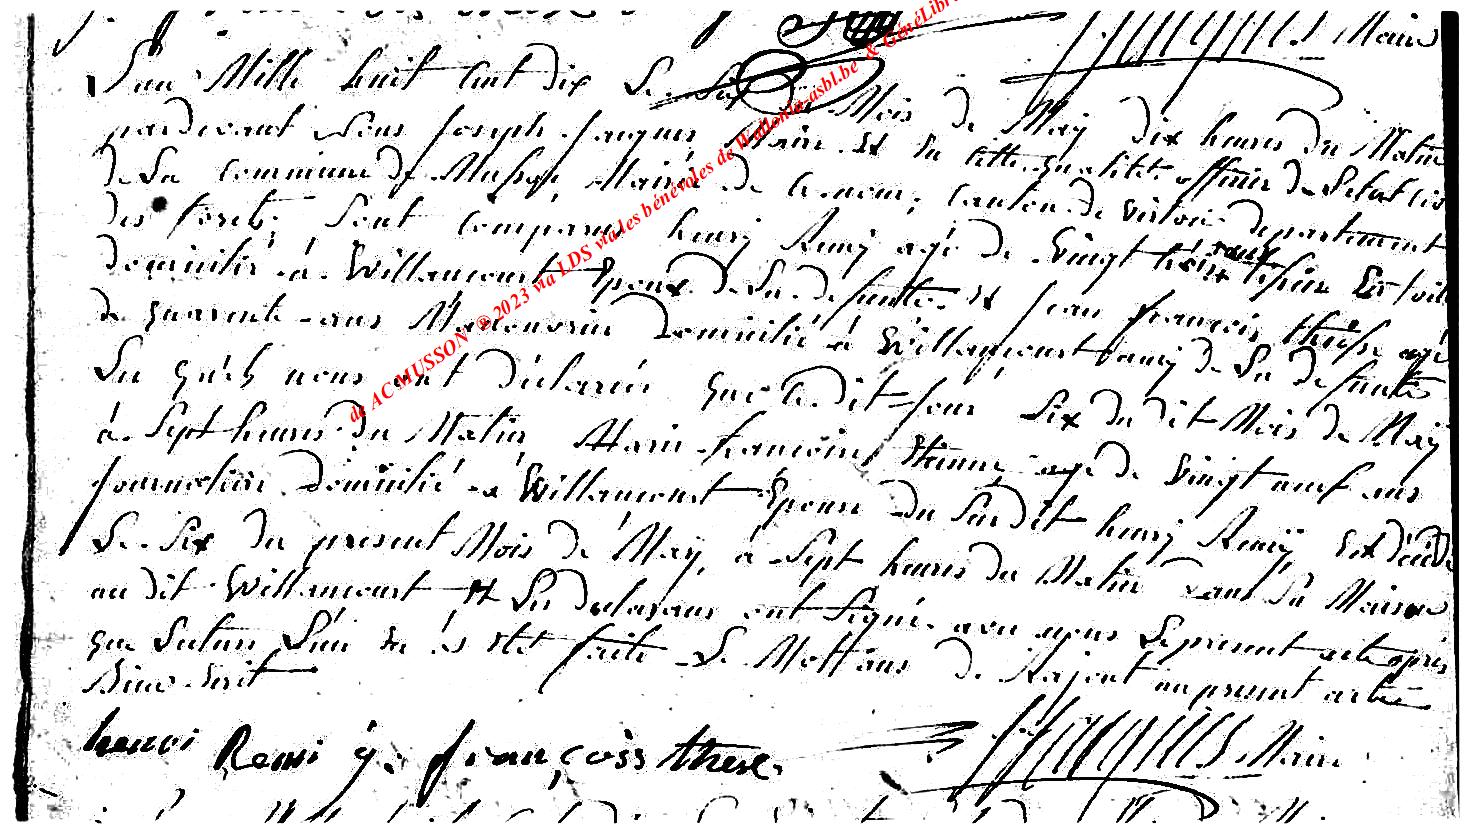 L'an Mille huit cent dix Le Six du Mois de May dix heures du Matin
pardevant Nous Joseph Jacques Maire Et En cette qualité officier de Letat civil
de La commune de Musson Mairie de commune, canton de Virton departement
des forets, Sont comparus henry Remy agé de Vingt trois ans
domicilié à Willancourt Epoux de La defunte et jean françois therese agé
de quarente ans Manouvrier Domicilié à Willancourt amy de La defunte
Les quels nous ont déclarés que ce dit jour Six du dit Mois de May
à Sept heures du Matin Marie françoise Etienne agé de Vingt neuf ans
journalière domicilié à Willancourt Epouse du Susdit henry Remy, est décédé
Le Six du present Mois de May, à Sept heures du Matin dans Sa Maison
au dit Willancourt Et Les declarans ont Signé avec nous Le present acte après
que Lecture Leur en és eté faite Le Mot ans de Rajout au present acte
Bien Ecrit
henri Remi j. françois therese Maire
de AC MUSSON ® 2023 via LDS via les bénévoles de Wallonia-asbl.be & GénéLibr